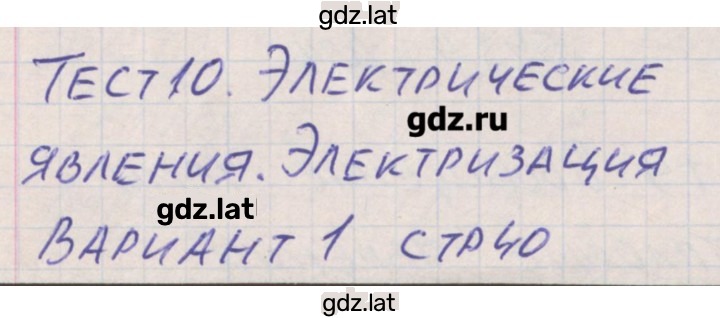 gdz.lat
ТЕСТ 10. ЭЛЕКТРИЧЕСКИЕ
gdz.ru
ЯВЛЕНИЯ. ЭЛЕКТРИЗАЦИЯ
gdz.lat
ВАРИАНТ 1 СТР 40
gdz.lat